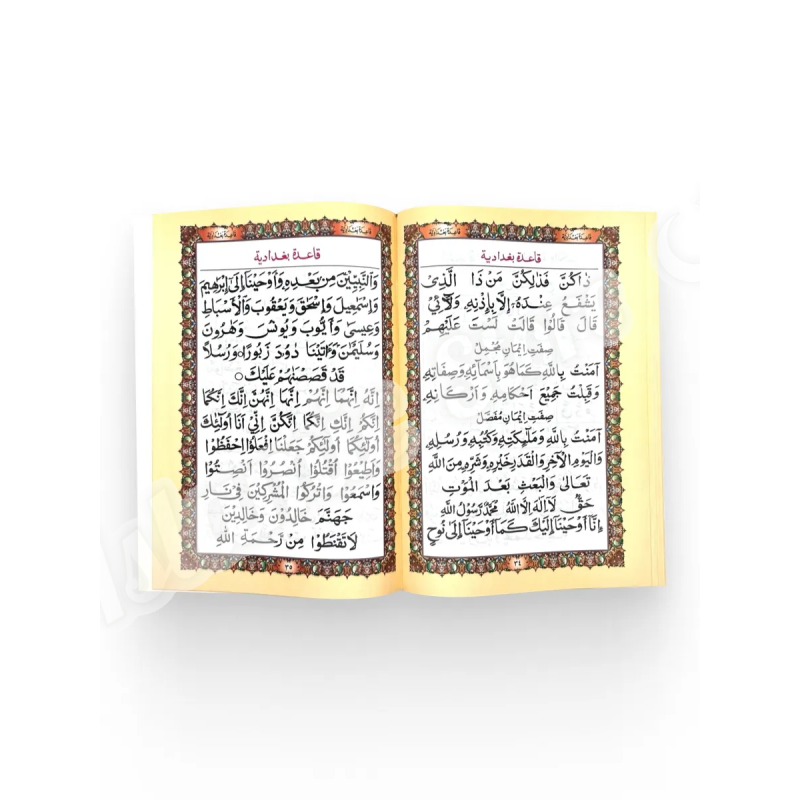 قاعدة بغدادية
قاعدة بغدادية
ذٰاكُنَّ فَذٰلِكُنَّ مَنْ ذَا الَّذِىْ
يَشْفَعُ عِنْدَهُ اِلَّا بِاِذْنِهِ وَلَا فِىْ
قَالَ قَالُوْا قَالَتْ لَسْتَ عَلَيْهِمْ
صِفَتِ اِيْمَانِ مُجْمَلْ
اٰمَنْتُ بِاللّٰهِ كَمَا هُوَ بِاَسْمَآئِهِ وَصِفَاتِهِ
وَقَبِلْتُ جَمِيْعَ اَحْكَامِهِ وَاَرْكَانِهِ
صِفَتِ اِيْمَانِ مُفَصَّلْ
اٰمَنْتُ بِاللّٰهِ وَمَلٰٓئِكَتِهِ وَكُتُبِهِ وَرُسُلِهِ
وَالْيَوْمِ الْاٰخِرِ وَالْقَدَرِ خَيْرِهِ وَشَرِّهِ مِنَ اللّٰهِ
تَعَالٰى وَالْبَعْثِ بَعْدَ الْمَوْتِ
حَقٌّ لَا اِلٰهَ اِلَّا اللّٰهُ مُحَمَّدٌ رَسُوْلُ اللّٰهِ
اِنَّا اَوْحَيْنَا اِلَيْكَ كَمَا اَوْحَيْنَا اِلٰى نُوْحٍ
٣٤
قاعدة بغدادية
قاعدة بغدادية
وَالنَّبِيِّيْنَ مِنْ بَعْدِهِ وَاَوْحَيْنَا اِلٰى اِبْرٰهِيْمَ
وَاِسْمٰعِيْلَ وَاِسْحٰقَ وَيَعْقُوْبَ وَالْاَسْبَاطِ
وَعِيْسٰى وَاَيُّوْبَ وَيُوْنُسَ وَهٰرُوْنَ
وَسُلَيْمٰنَ وَاٰتَيْنَا دَاوٗدَ زَبُوْرًا وَرُسُلًا
قَدْ قَصَصْنٰهُمْ عَلَيْكَ
اِنَّهُ اِنَّهُمَا اِنَّهُمْ اِنَّهَا اِنَّهُنَّ اِنَّكَ اِنَّكُمَا
اِنَّكُمْ اِنَّكِ اِنَّكُمَا اِنَّكُنَّ اِنِّىْ اَنَا اُولٰٓئِكَ
اُولٰٓئِكُمَا اُولٰٓئِكُمْ جَعَلْنَا اِفْعَلُوْا اِحْفَظُوْا
وَاَطِيْعُوْا اُقْتُلُوْا اُنْصُرُوْا اَنْصِتُوْا
وَاسْمَعُوْا وَاتْرُكُوا الْمُشْرِكِيْنَ فِىْ نَارِ
جَهَنَّمَ خَالِدُوْنَ وَخَالِدِيْنَ
لَا تَقْنَطُوْا مِنْ رَحْمَةِ اللّٰهِ
٣٥